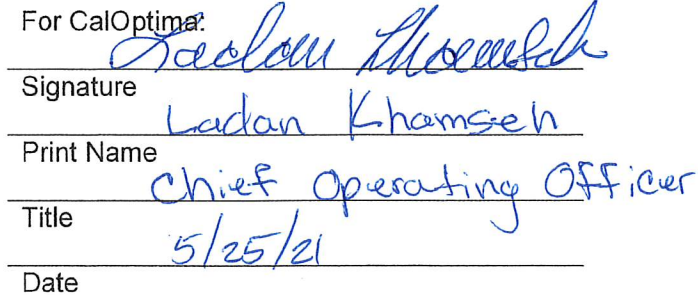 For CalOptima:
Ladan Khamseh
Signature
Ladan Khamseh
Print Name
Chief Operating Officer
Title
5/25/21
Date